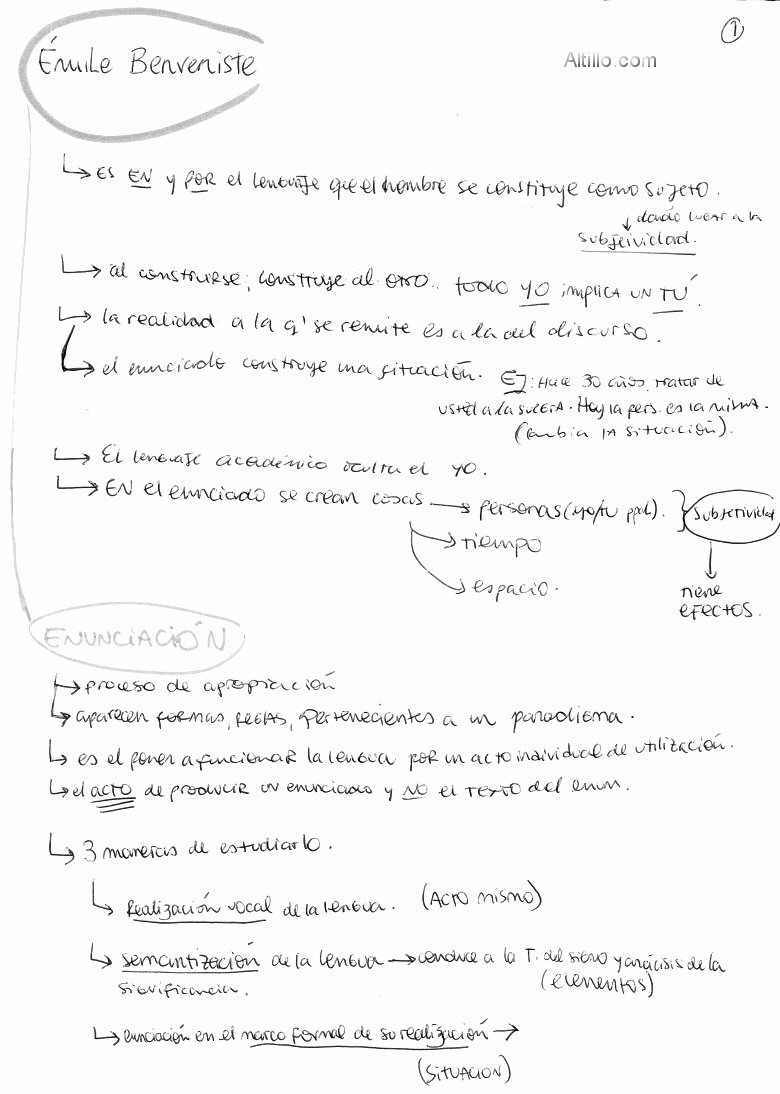 1
Émile Benveniste
Altillo.com
↳ es EN y POR el lenguaje que el hombre se constituye como sujeto.
↓ dando lugar a la
subjetividad.
↳ al construirse, construye al otro.. todo YO implica UN TÚ.
↳ la realidad a la q' se remite es a la del discurso.
↳ el enunciado construye una situación. EJ: Hace 30 años, tratar de
usted a la suegra. Hoy la pers. es la misma.
(cambia la situación).
↳ El lenguaje académico oculta el yo.
↳ EN el enunciado se crean cosas → personas (yo/tu ppal). } Subjetividad
→ tiempo
→ espacio.
↓
tiene
efectos.
ENUNCIACIÓN
↳ proceso de apropiación
↳ aparecen formas, reglas, pertenecientes a un paradigma.
↳ es el poner a funcionar la lengua por un acto individual de utilización.
↳ el acto de producir un enunciado y NO el texto del enun.
↳ 3 maneras de estudiarlo.
↳ Realización vocal de la lengua. (Acto mismo)
↳ semantización de la lengua → conduce a la T. del signo y análisis de la
significancia. (elementos)
↳ enunciación en el marco formal de su realización →
(SITUACIÓN)